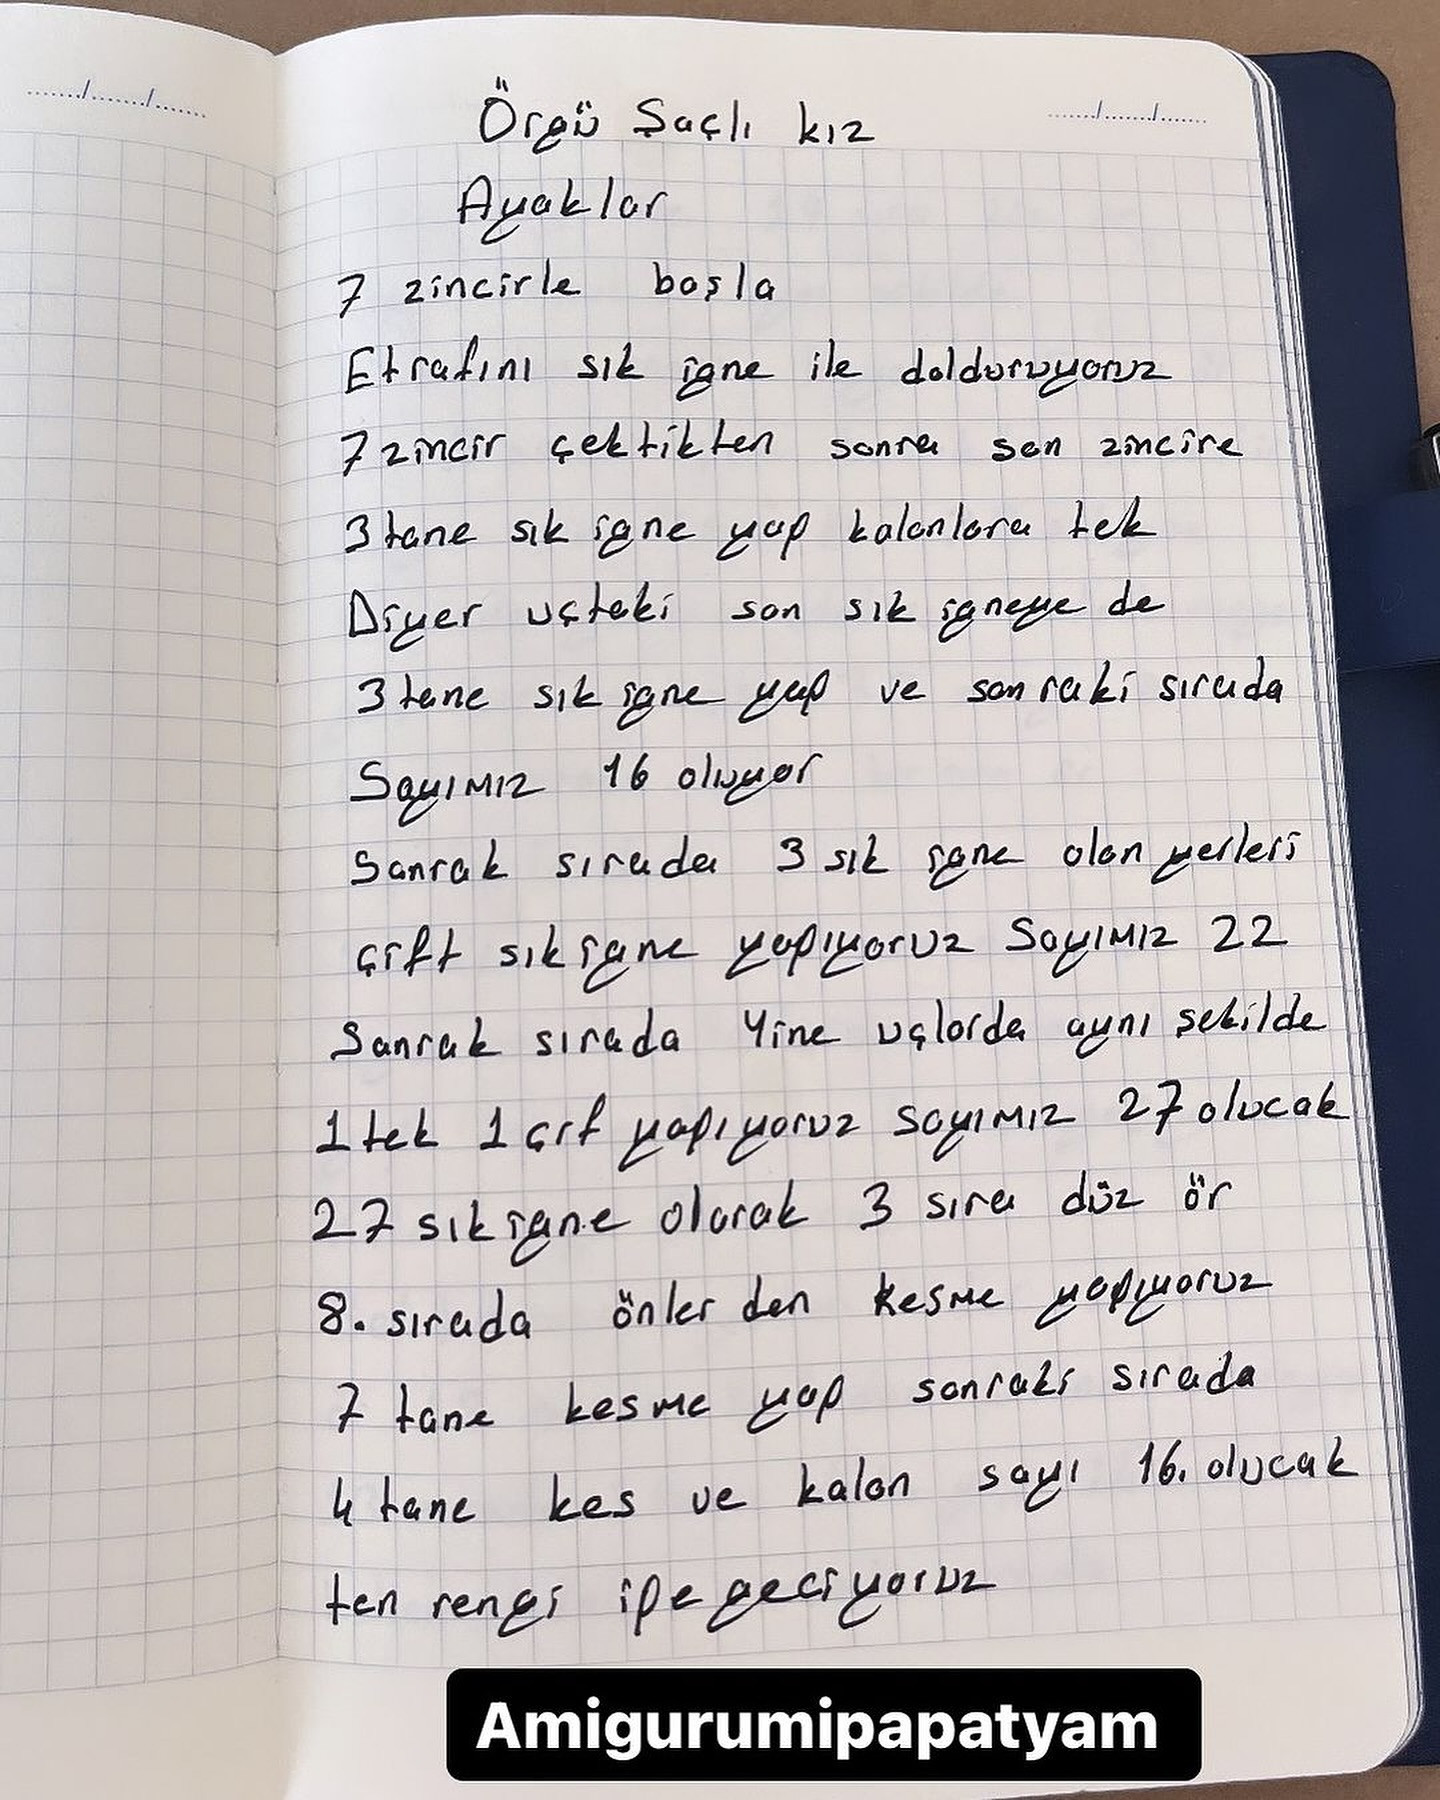 Örgü Saçlı kız
Ayaklar
7 zincirle başla
Etrafını sık iğne ile dolduruyoruz
7 zincir çektikten sonra son zincire
3 tane sık iğne yap kalanlara tek
Diyer uçtaki son sık iğneye de
3 tane sık iğne yap ve sonraki sırada
Sayımız 16 oluyor
Sonrak sırada 3 sık iğne olan yerleri
çift sık iğne yapıyoruz Sayımız 22
Sonrak sırada Yine uçlarda aynı şekilde
1 tek 1 çif yapıyoruz sayımız 27 olucak
27 sık iğne olarak 3 sıra düz ör
8. sırada önler den kesme yapıyoruz
7 tane kesme yap sonraki sırada
4 tane kes ve kalan sayı 16. olucak
ten rengi ipe geciyoruz
Amigurumipapatyam